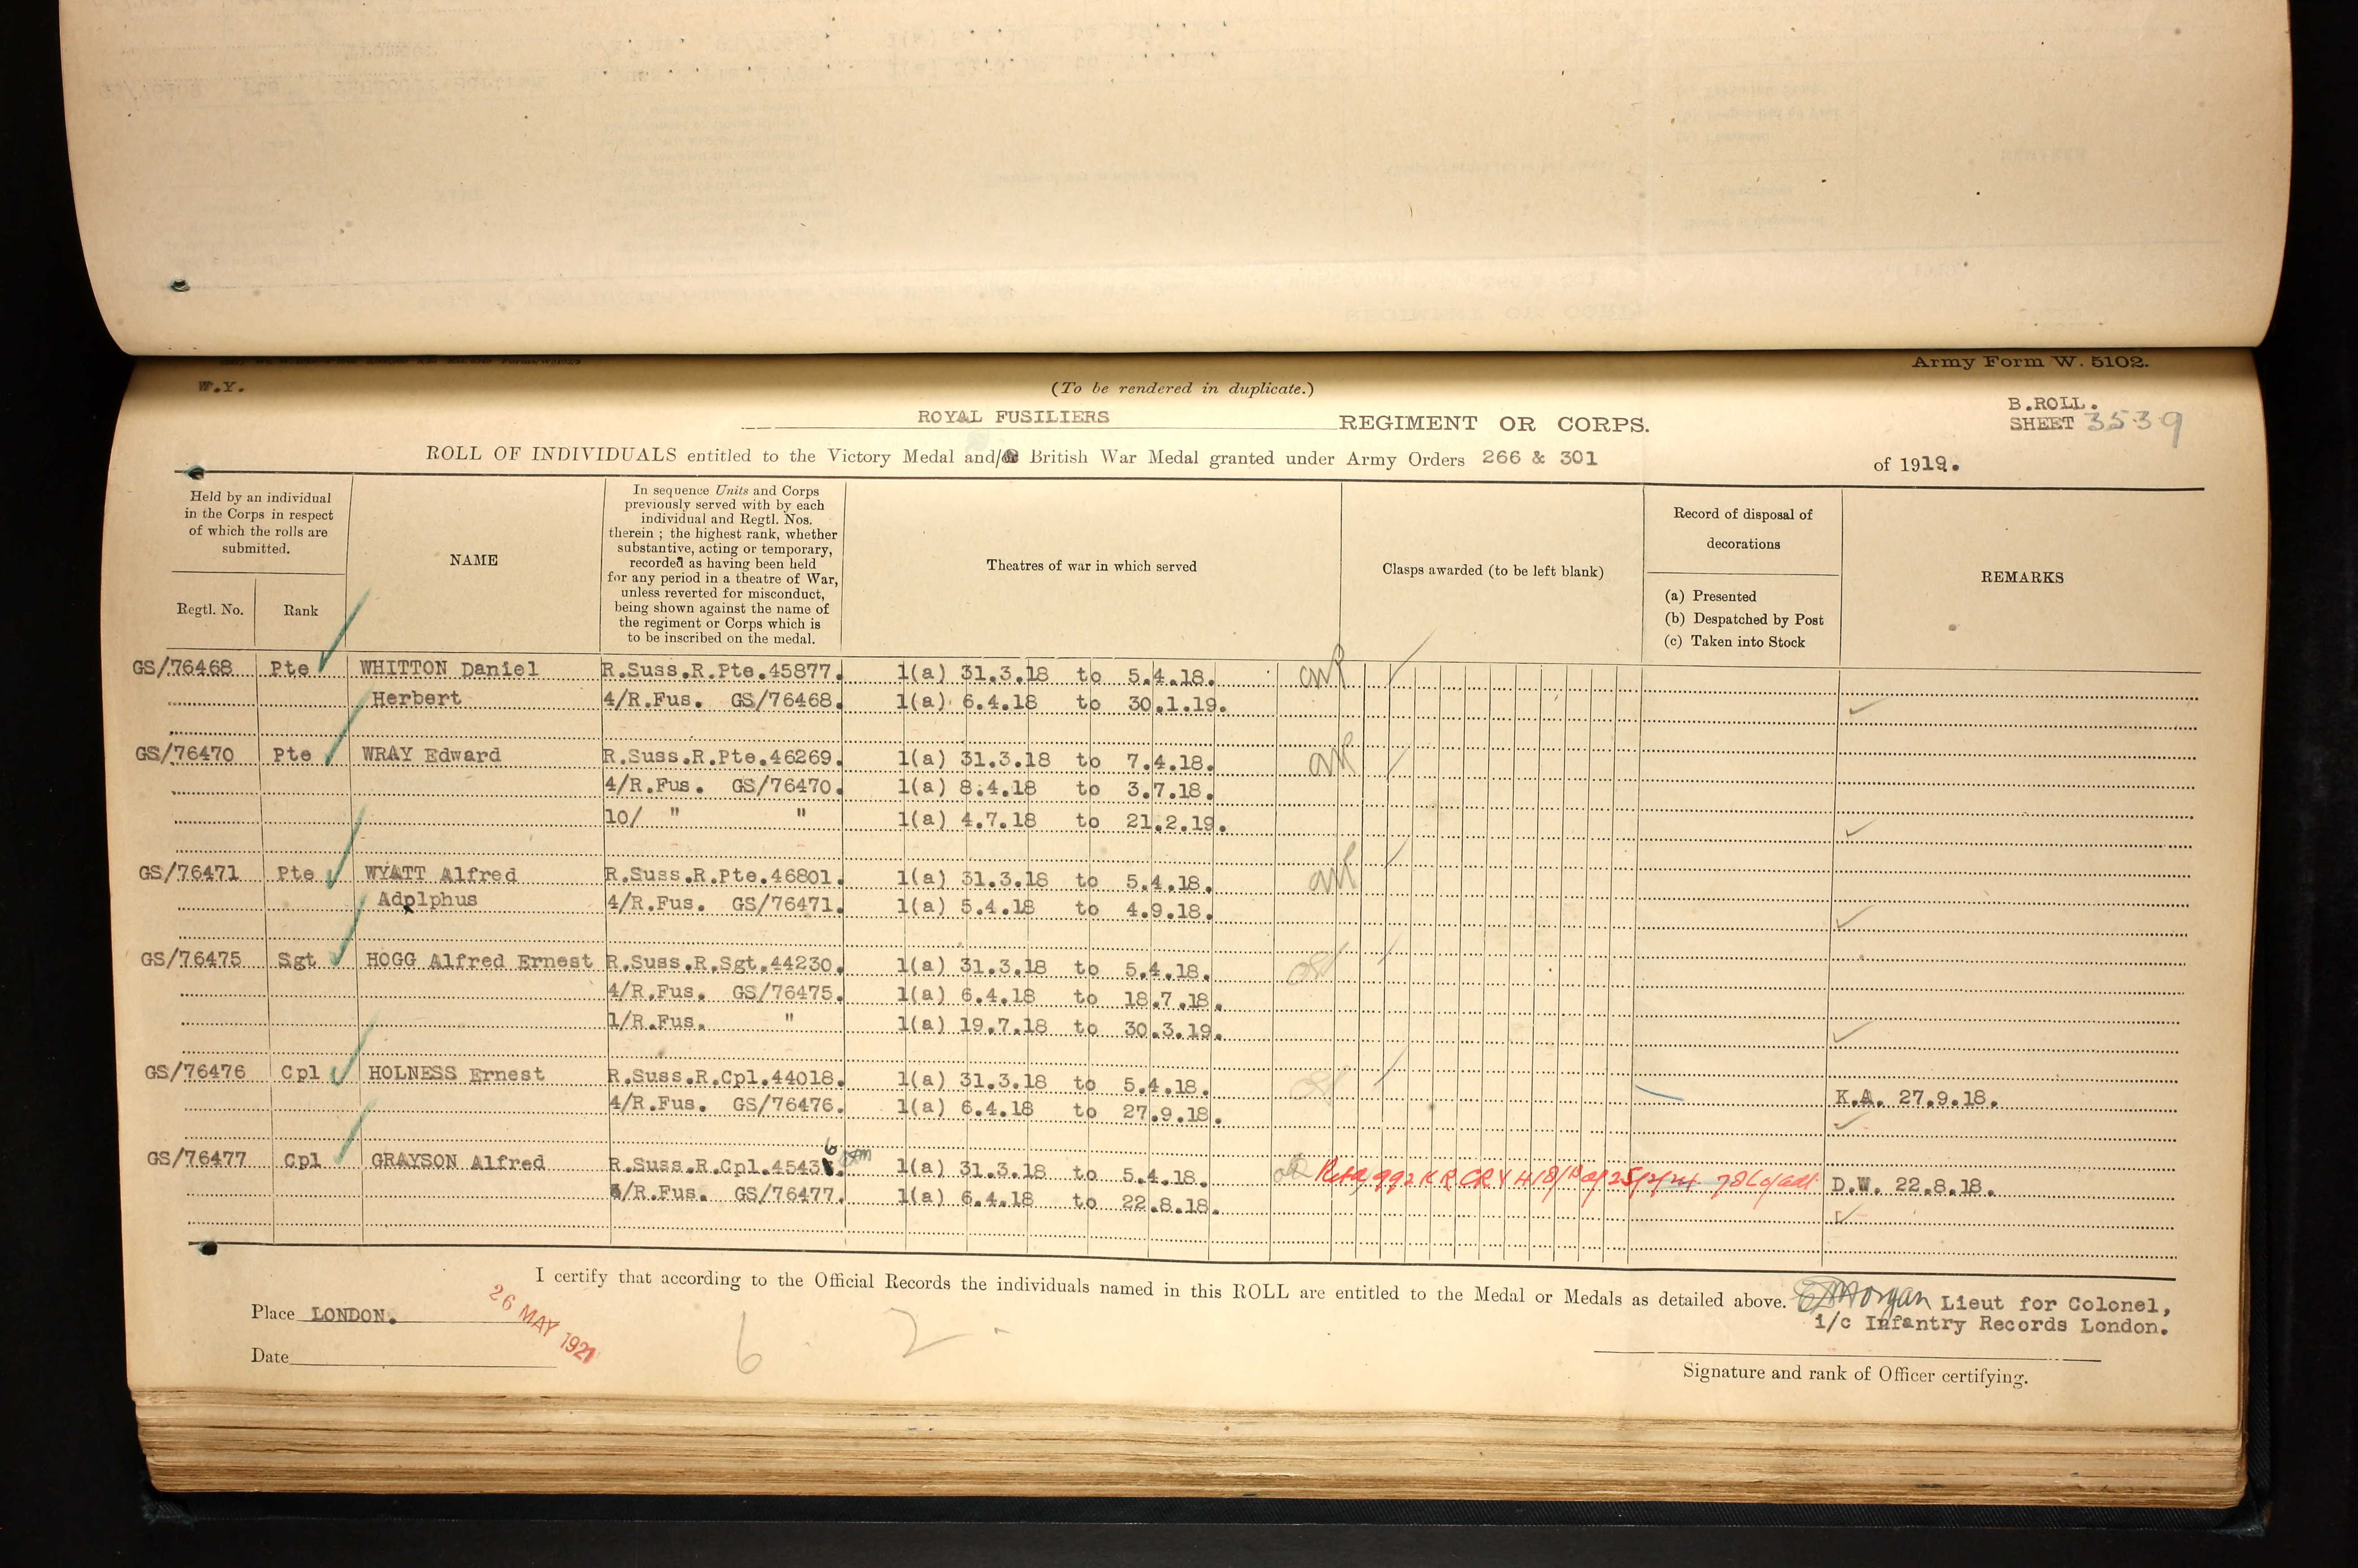 Army Form W. 5102.
W.Y.
(To be rendered in duplicate.)
B.ROLL.
ROYAL FUSILIERS REGIMENT OR CORPS.
SHEET 3539
ROLL OF INDIVIDUALS entitled to the Victory Medal and/or British War Medal granted under Army Orders 266 & 301 of 1919.
Held by an individual
in the Corps in respect
of which the rolls are
submitted.
Regtl. No.
Rank
NAME
In sequence Units and Corps
previously served with by each
individual and Regtl. Nos.
therein ; the highest rank, whether
substantive, acting or temporary,
recorded as having been held
for any period in a theatre of War,
unless reverted for misconduct,
being shown against the name of
the regiment or Corps which is
to be inscribed on the medal.
Theatres of war in which served
Clasps awarded (to be left blank)
Record of disposal of
decorations
(a) Presented
(b) Despatched by Post
(c) Taken into Stock
REMARKS
GS/76468 Pte WHITTON Daniel R.Suss.R.Pte.45877. 1(a) 31.3.18 to 5.4.18.
Herbert 4/R.Fus. GS/76468. 1(a) 6.4.18 to 30.1.19.
GS/76470 Pte WRAY Edward R.Suss.R.Pte.46269. 1(a) 31.3.18 to 7.4.18.
4/R.Fus. GS/76470. 1(a) 8.4.18 to 3.7.18.
10/ " " 1(a) 4.7.18 to 21.2.19.
GS/76471 Pte WYATT Alfred R.Suss.R.Pte.46801. 1(a) 31.3.18 to 5.4.18.
Adolphus 4/R.Fus. GS/76471. 1(a) 5.4.18 to 4.9.18.
GS/76475 Sgt HOGG Alfred Ernest R.Suss.R.Sgt.44230. 1(a) 31.3.18 to 5.4.18.
4/R.Fus. GS/76475. 1(a) 6.4.18 to 18.7.18.
1/R.Fus. " 1(a) 19.7.18 to 30.3.19.
GS/76476 Cpl HOLNESS Ernest R.Suss.R.Cpl.44018. 1(a) 31.3.18 to 5.4.18.
4/R.Fus. GS/76476. 1(a) 6.4.18 to 27.9.18. K.A. 27.9.18.
GS/76477 Cpl GRAYSON Alfred R.Suss.R.Cpl.45436. 1(a) 31.3.18 to 5.4.18. 992 KR D.W. 22.8.18.
/R.Fus. GS/76477. 1(a) 6.4.18 to 22.8.18.
I certify that according to the Official Records the individuals named in this ROLL are entitled to the Medal or Medals as detailed above.
Morgan Lieut for Colonel,
i/c Infantry Records London.
Place LONDON.
26 MAY 1921
6 2
Date
Signature and rank of Officer certifying.